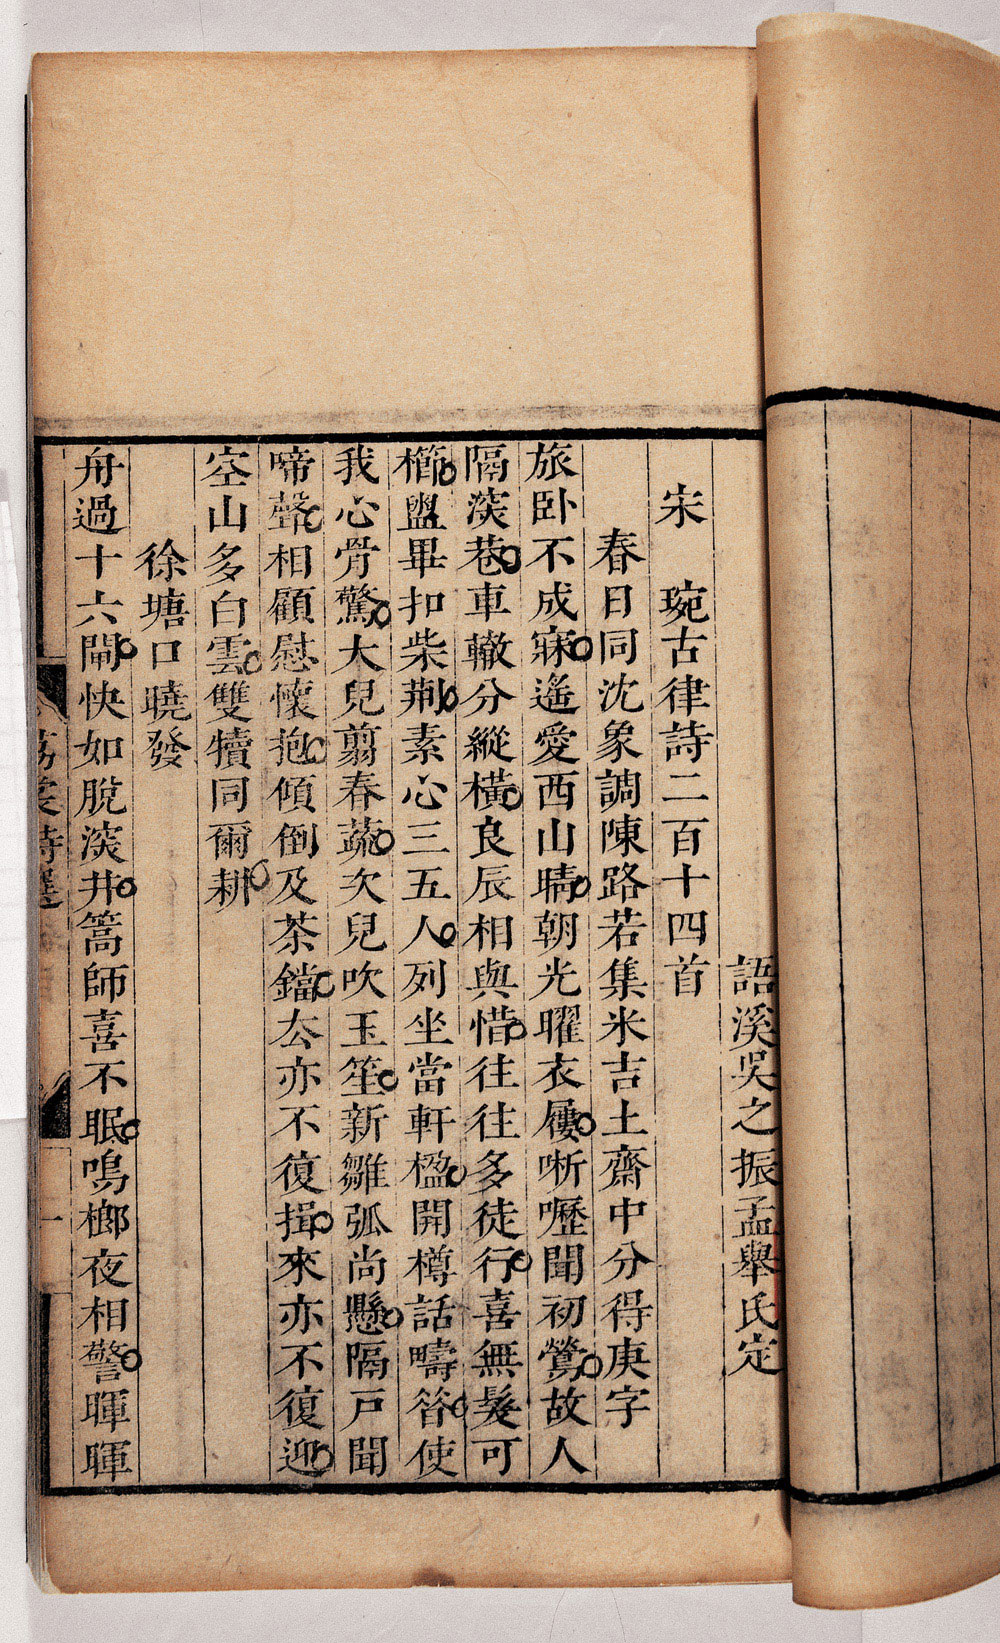 語溪吳之振孟舉氏定
宋　琬古律詩二百十四首
春日同沈象調陳路若集米吉土齋中分得庚字
旅卧不成寐遙愛西山晴朝光曜衣屨哳嚦聞初鶯故人
隔深巷車轍分縱橫良辰相與惜往往多徒行喜無髮可
櫛盥畢扣柴荆素心三五人列坐當軒楹開樽話疇昝使
我心骨驚大兒翦春蔬次兒吹玉笙新雛弧尚懸隔戸聞
啼聲相顧慰懷抱傾倒及茶鐺厺亦不復揖來亦不復迎
空山多白雲雙犢同爾耕
徐塘口曉發
舟過十六閘快如脫深井篙師喜不眠鳴榔夜相警暉暉
詩選
一